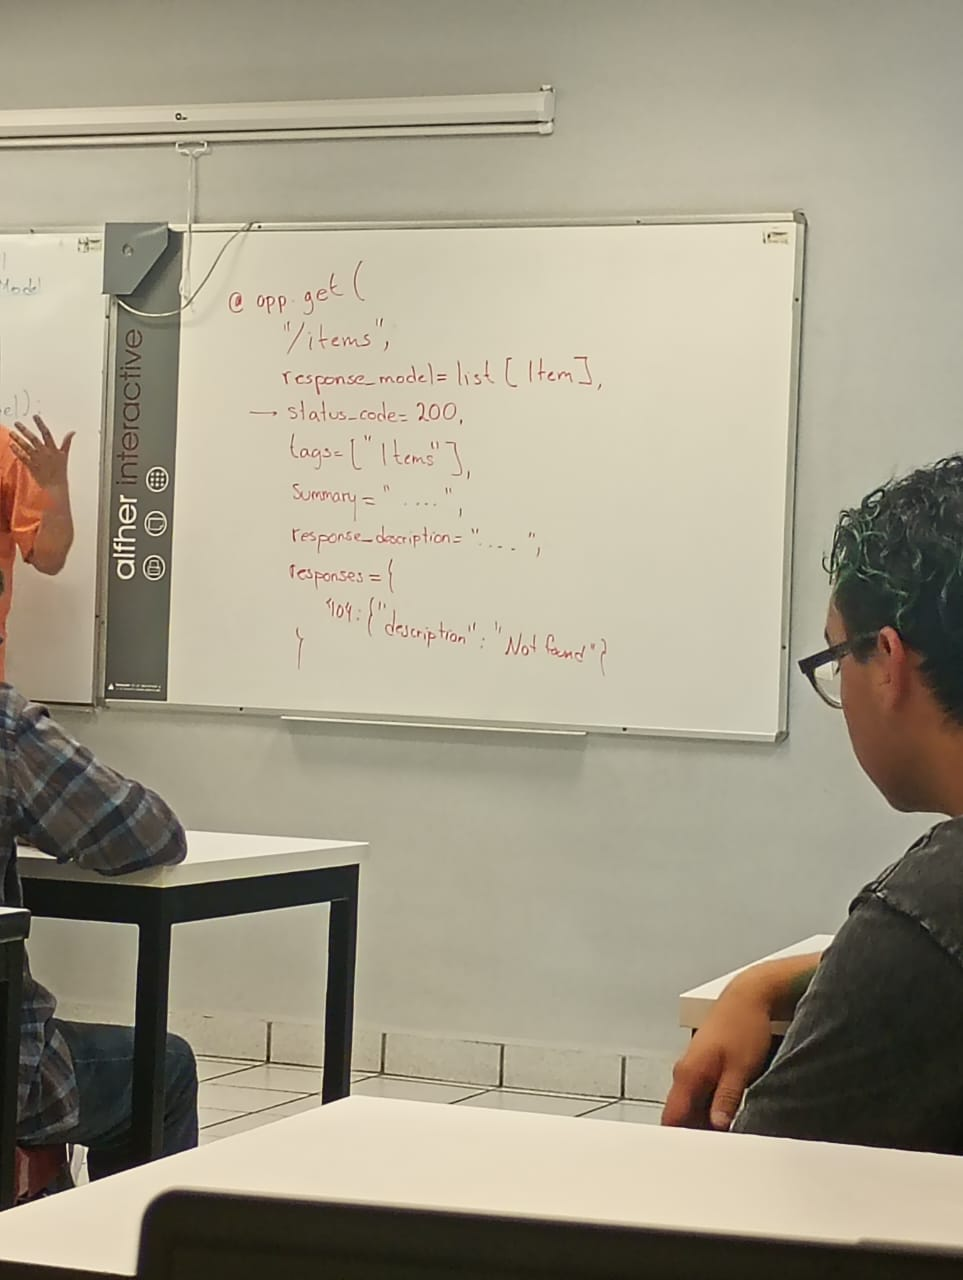 Model
el);
alfher interactive
@ app.get(
"/items",
response_model= list [Item],
→ status_code= 200,
tags= ["Items"],
Summary= "....",
response_description= "....",
responses = {
404: {"description": "Not found"}
}